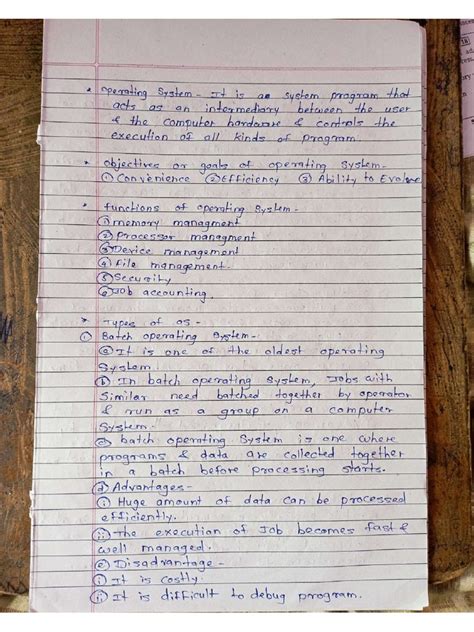 • Operating System - It is a system program that
acts as an intermediary between the user
& the computer hardware & controls the
execution of all kinds of program.
• Objectives or goals of operating system-
① Convenience ② Efficiency ③ Ability to Evolve
• functions of operating System-
① memory managment
② Processor managment
③ Device management
④ File management.
⑤ Security
⑥ Job accounting.
* Types of OS -
① Batch operating System-
ⓐ It is one of the oldest operating
System.
ⓑ In batch operating system, Jobs with
Similar need batched together by operator
& run as a group on a computer
System.
ⓒ batch operating System is one where
programs & data are collected together
in a batch before processing starts.
ⓓ Advantages-
ⓘ Huge amount of data can be processed
efficiently.
ⓘⓘ The execution of Job becomes fast &
well managed.
ⓔ Disadvantage-
ⓘ It is costly.
ⓘⓘ It is difficult to debug program.